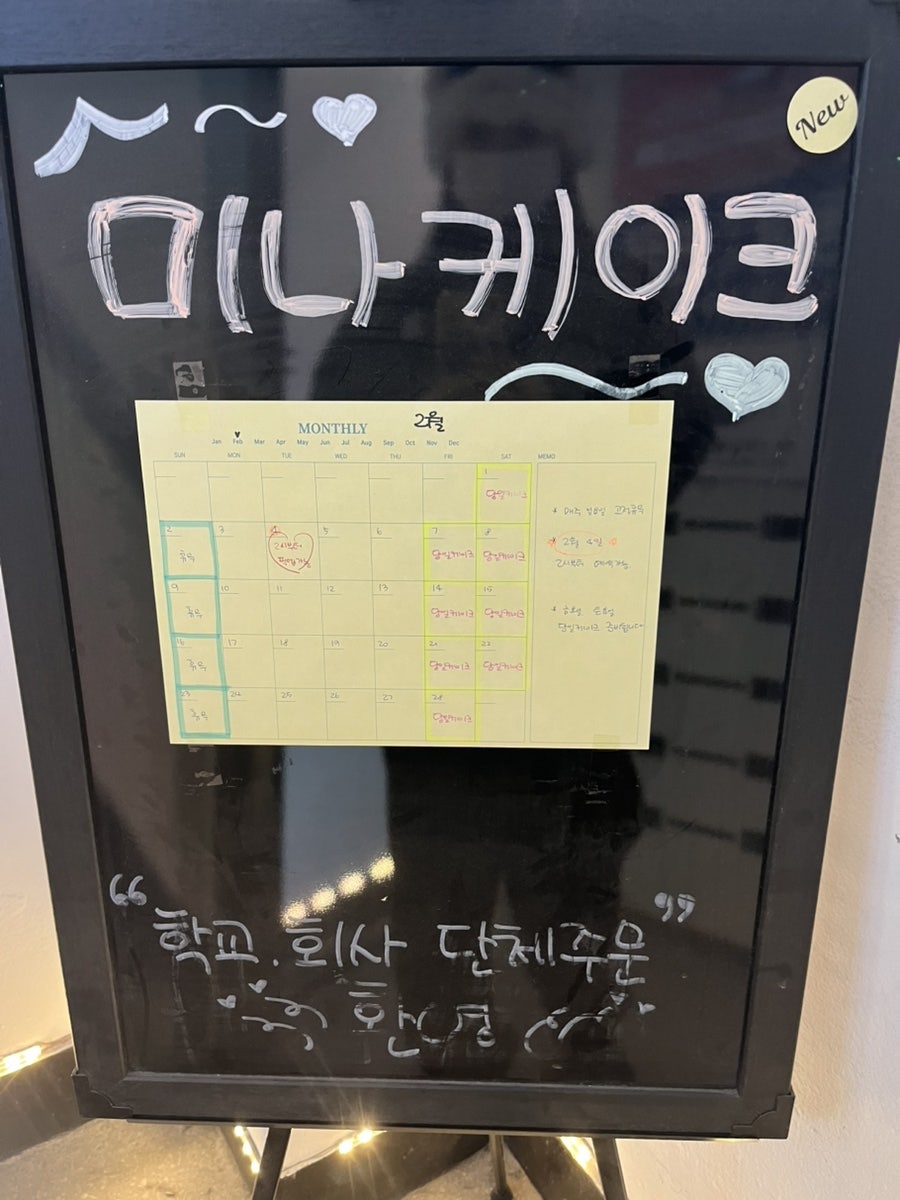 New
미나케이크
2월
MONTHLY
Jan Feb Mar Apr May Jun Jul Aug Sep Oct Nov Dec
SUN MON TUE WED THU FRI SAT MEMO
1
당일케이크
2 3 4 5 6 7 8
휴무 2시부터 픽업가능 당일케이크 당일케이크
9 10 11 12 13 14 15
휴무 당일케이크 당일케이크
16 17 18 19 20 21 22
휴무 당일케이크 당일케이크
23 24 25 26 27 28
휴무 당일케이크
* 매주 일요일 고정휴무
* 2월 4일
2시부터 예약가능
* 금요일 토요일
당일케이크 준비됩니다
“학교.회사 단체주문”
환영